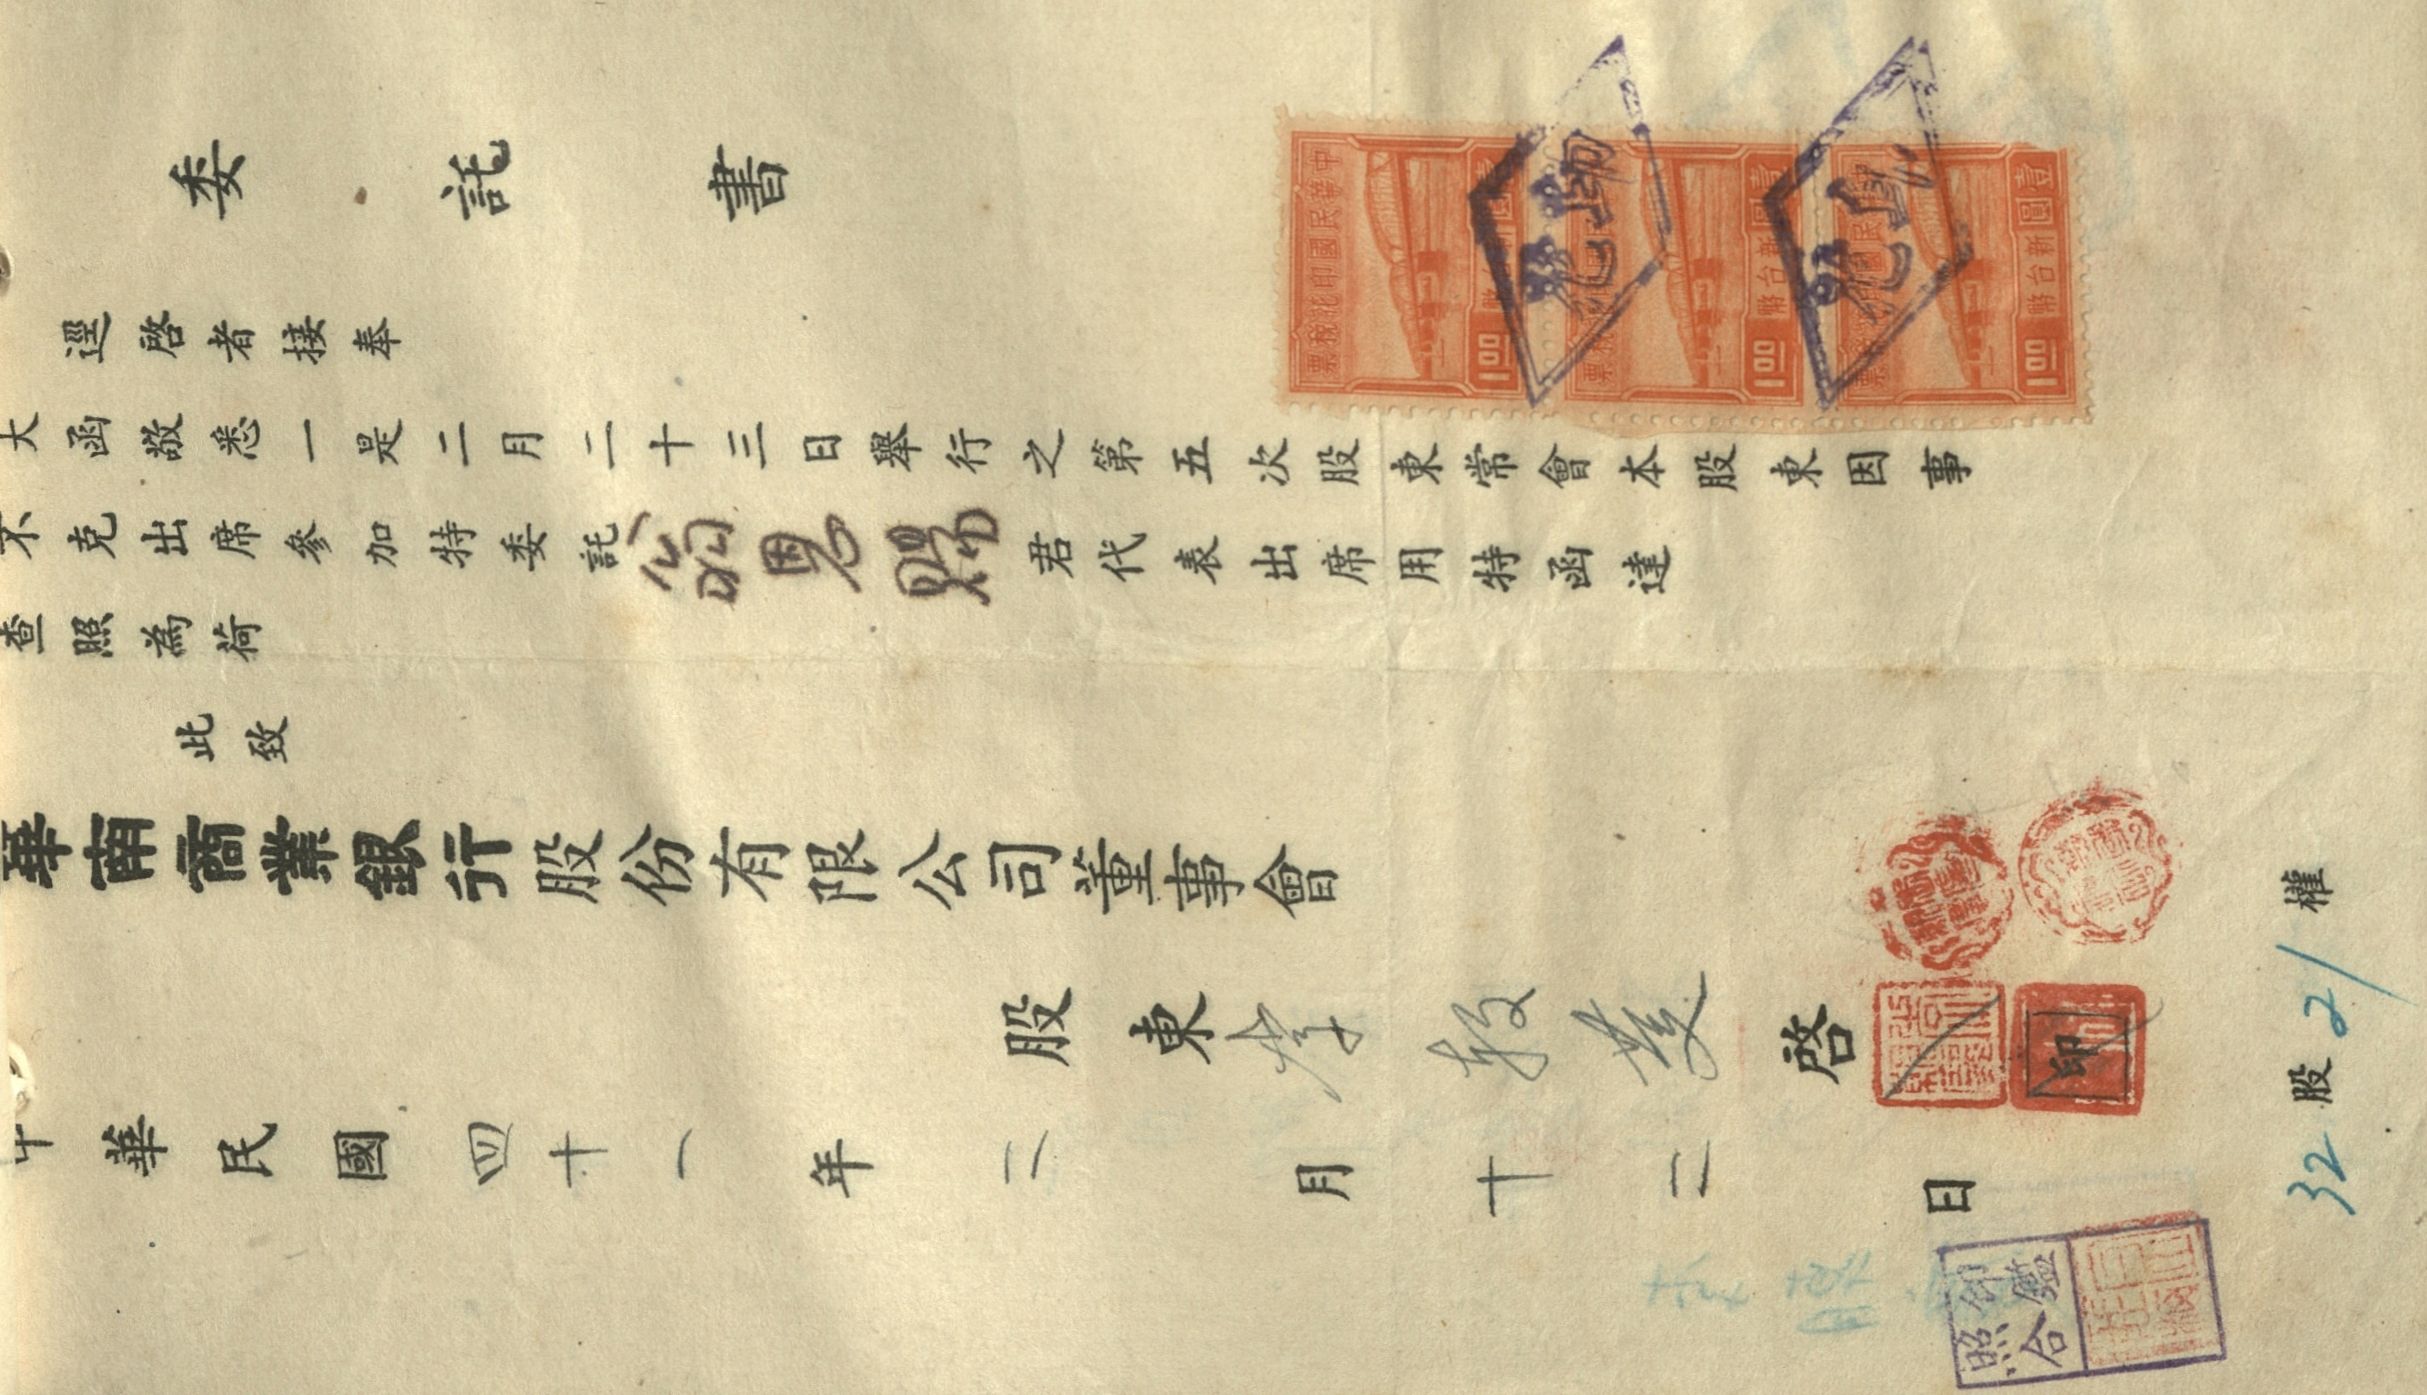 委託書
逕啓者接奉
大函敬悉一是二月二十三日舉行之第五次股東常會本股東因事
不克出席參加特委託翁恩賜君代表出席用特函達
查照為荷
此致
華南商業銀行股份有限公司董事會
股東 啓
印
中華民國四十一年二月十二日
32股21權
印鑑
照合
中華民國印花稅票
壹圓
新台幣
1.00
壹圓
新台幣
1.00
壹圓
新台幣
1.00